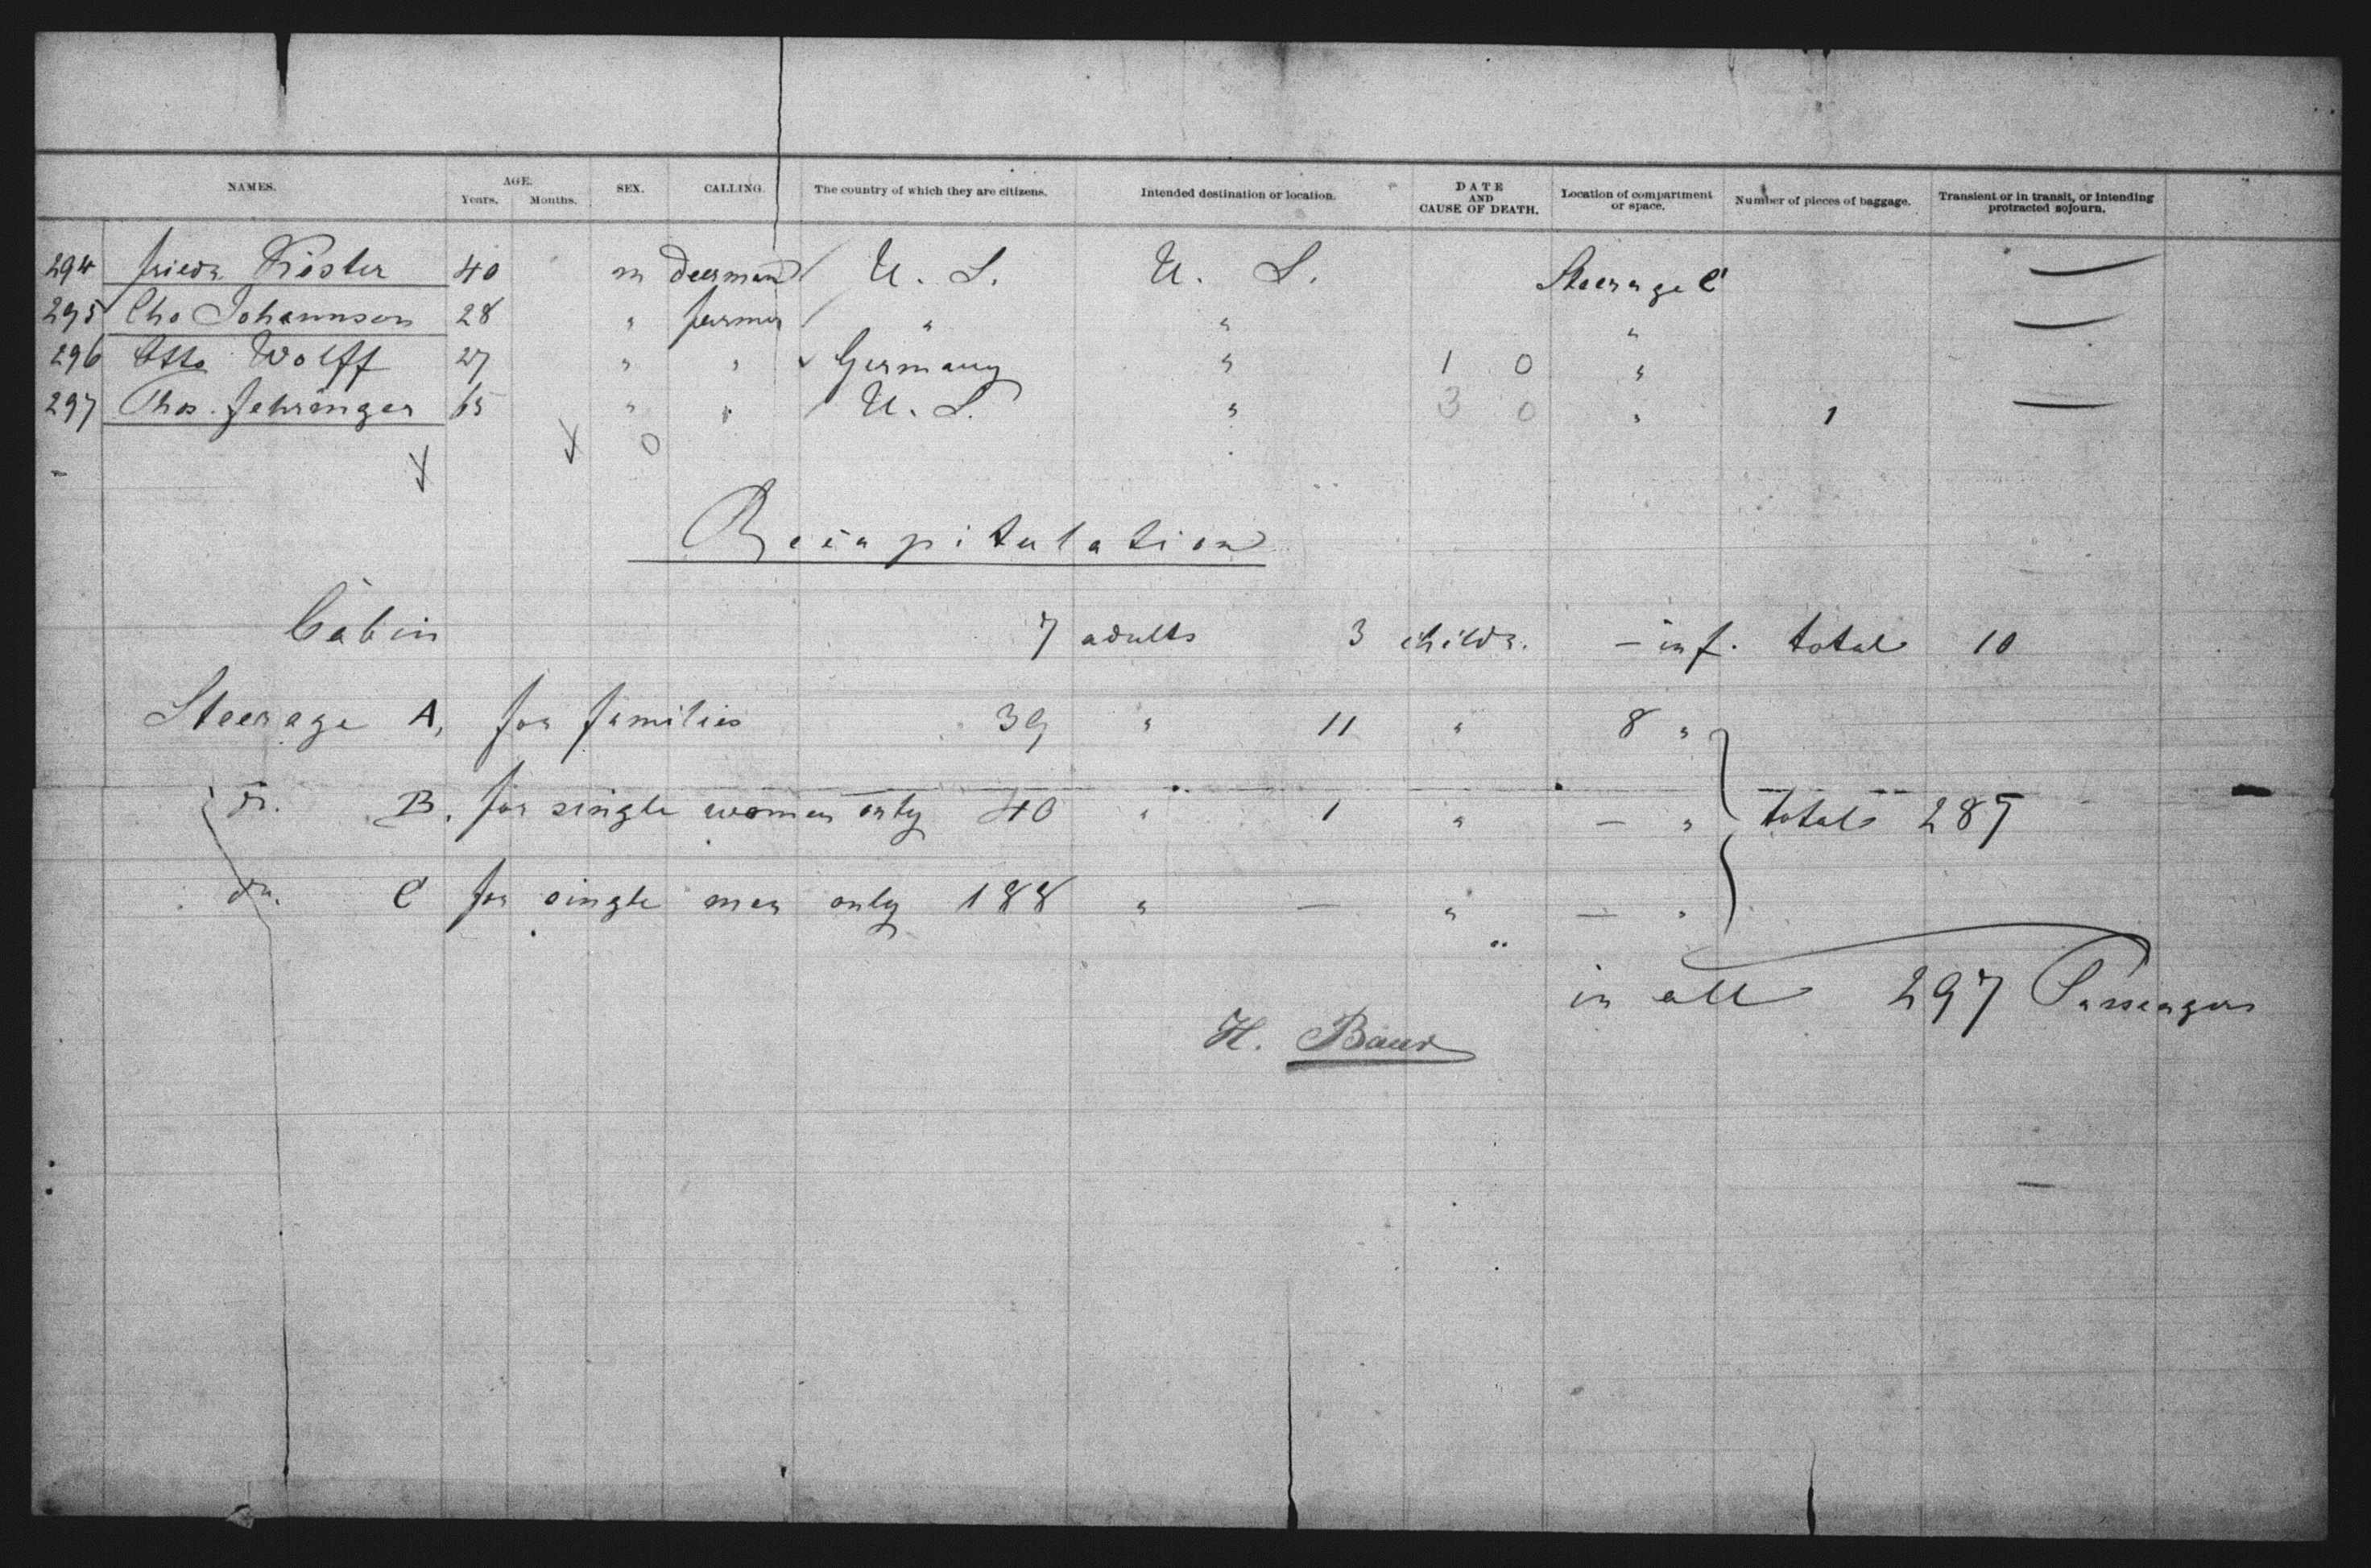 NAMES. AGE. Years. Months. SEX. CALLING. The country of which they are citizens. Intended destination or location. DATE AND CAUSE OF DEATH. Location of compartment or space. Number of pieces of baggage. Transient or in transit, or intending protracted sojourn.
294 40 m U. S. U. S. Steerage C —
295 Johannsen 28 " farmer " " " —
296 Otto Wolff 27 " " Germany " 1 0 "
297 Chas. Fehringer 65 " " U. S. " 3 0 " 1 —
0
Recapitulation
Cabin 7 adults 3 childr. — inf. total 10
Steerage A, for families 39 " 11 " 8 "
do. B, for single women only 40 " 1 " — " total 287
do. C for single men only 188 " — " — "
in all 297 Passengers
H. Baur